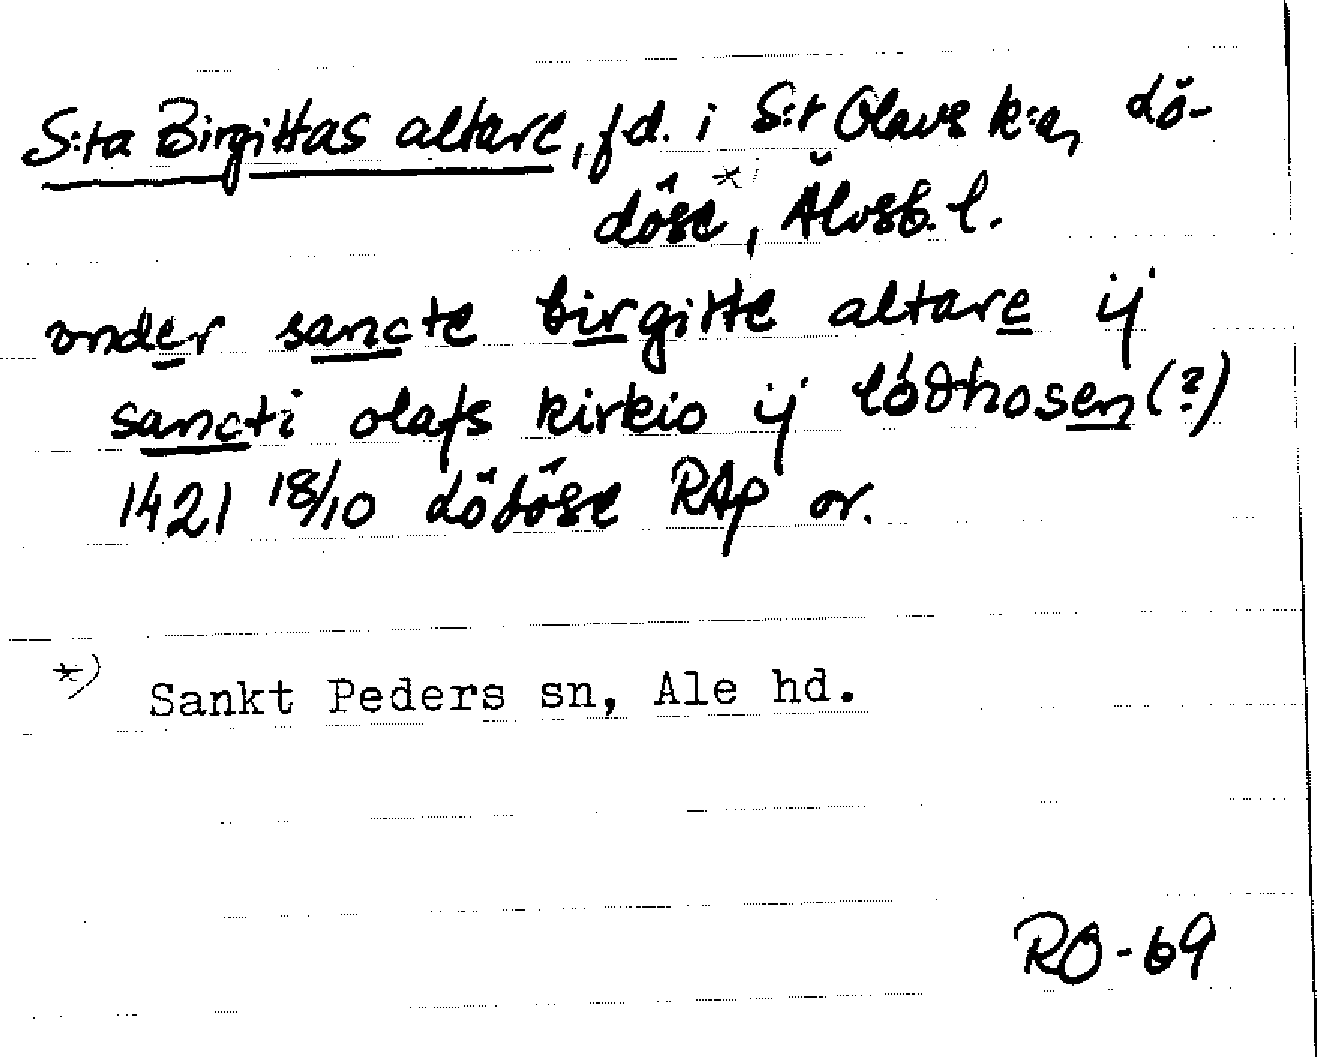 S:ta Birgittas altare, f.d. i S:t Olavs k:a, Lö-
döse*, Älvsb. l.
vnder sancte birgitte altare ij
sancti olafs kirkio ij lödhosen (?)
1421 18/10 Lödöse RAp or.
*) Sankt Peders sn, Ale hd.
RO-69